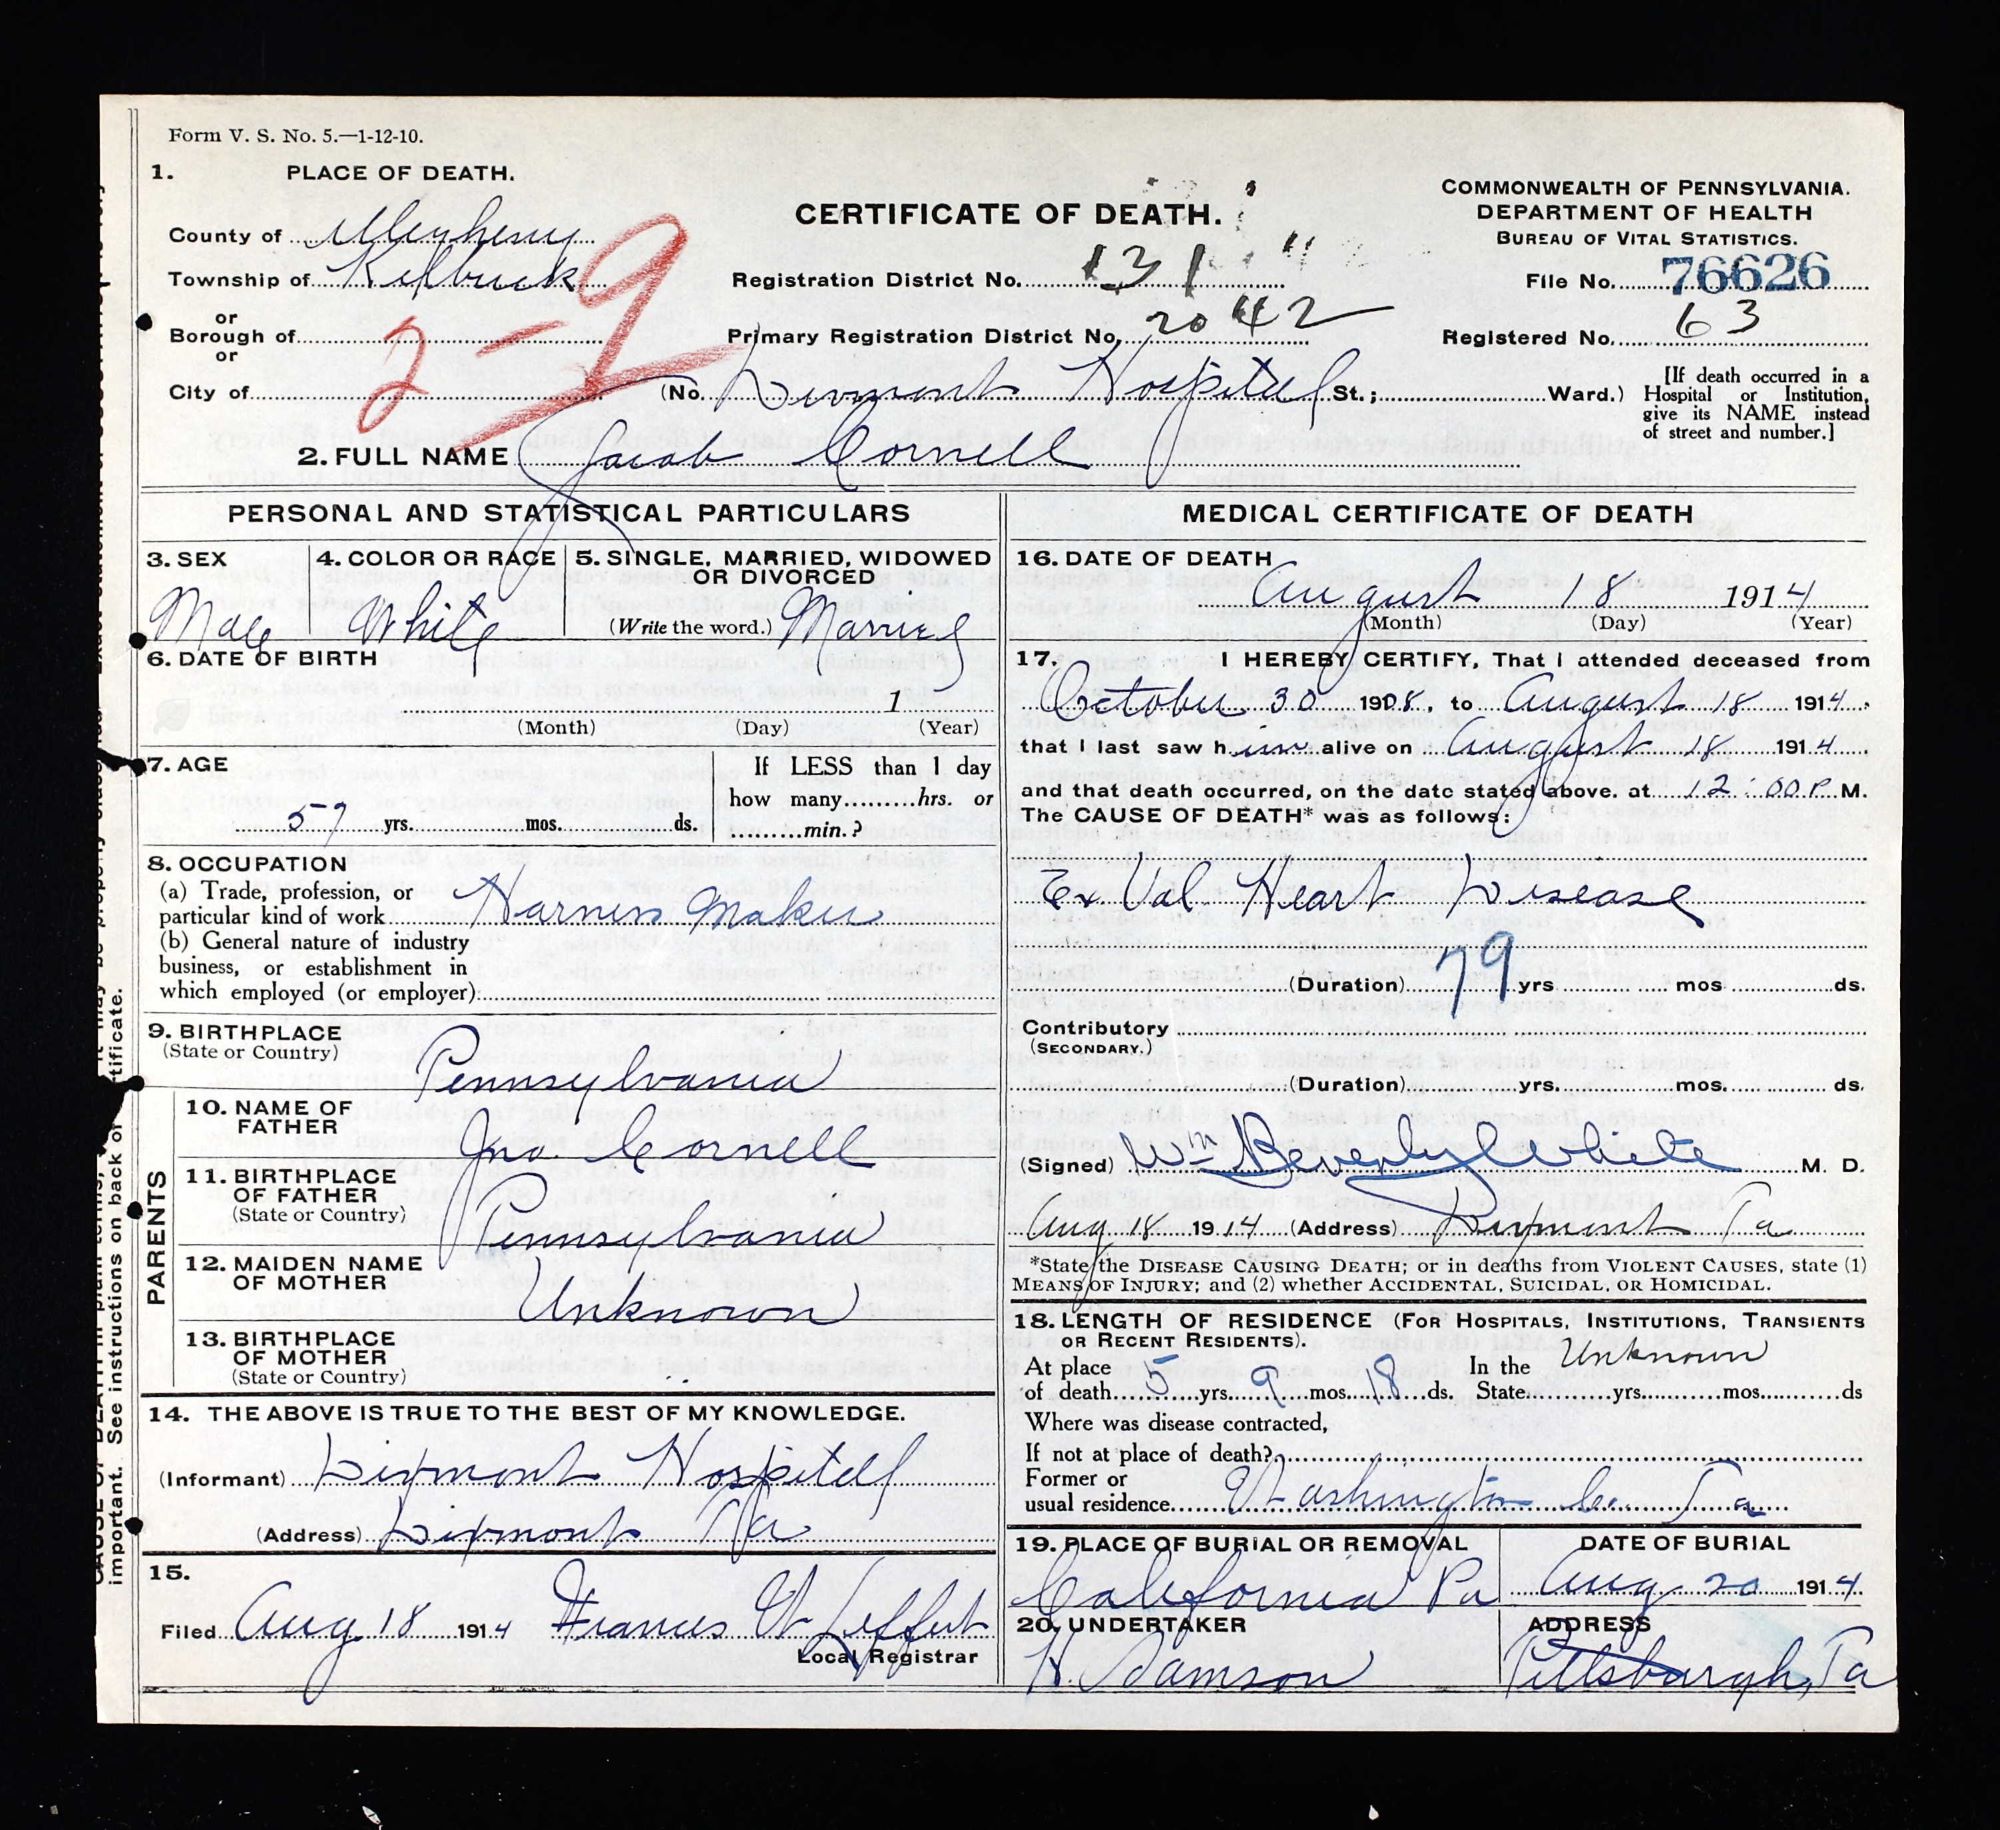 Form V. S. No. 5.—1-12-10.
1. PLACE OF DEATH.
County of Allegheny
Township of Kilbuck
or
Borough of
or
City of
2-9
CERTIFICATE OF DEATH.
Registration District No. 131
Primary Registration District No. 2042
(No. Dixmont Hospital St.; Ward.)
COMMONWEALTH OF PENNSYLVANIA.
DEPARTMENT OF HEALTH
BUREAU OF VITAL STATISTICS.
File No. 76626
Registered No. 63
[If death occurred in a
Hospital or Institution,
give its NAME instead
of street and number.]
2. FULL NAME Jacob Cornell
PERSONAL AND STATISTICAL PARTICULARS
3. SEX
Male
4. COLOR OR RACE
White
5. SINGLE, MARRIED, WIDOWED
OR DIVORCED
(Write the word.) Married
6. DATE OF BIRTH
1
(Month) (Day) (Year)
7. AGE
57 yrs. mos. ds.
If LESS than 1 day
how many hrs. or
min.?
8. OCCUPATION
(a) Trade, profession, or
particular kind of work Harness Maker
(b) General nature of industry
business, or establishment in
which employed (or employer)
9. BIRTHPLACE
(State or Country)
Pennsylvania
PARENTS
10. NAME OF
FATHER
Jno. Cornell
11. BIRTHPLACE
OF FATHER
(State or Country)
Pennsylvania
12. MAIDEN NAME
OF MOTHER
Unknown
13. BIRTHPLACE
OF MOTHER
(State or Country)
14. THE ABOVE IS TRUE TO THE BEST OF MY KNOWLEDGE.
(Informant) Dixmont Hospital
(Address) Dixmont Pa
15.
Filed Aug 18 1914 Frances
Local Registrar
MEDICAL CERTIFICATE OF DEATH
16. DATE OF DEATH
August 18 1914
(Month) (Day) (Year)
17. I HEREBY CERTIFY, That I attended deceased from
October 30 1908, to August 18 1914.
that I last saw him alive on August 18 1914.
and that death occurred, on the date stated above, at 12:00 P. M.
The CAUSE OF DEATH* was as follows:
Val Heart Disease
79
(Duration) yrs mos ds.
Contributory
(SECONDARY.)
(Duration) yrs. mos. ds.
(Signed) Wm Beverly White M. D.
Aug 18 1914 (Address) Dixmont Pa
*State the DISEASE CAUSING DEATH; or in deaths from VIOLENT CAUSES, state (1)
MEANS OF INJURY; and (2) whether ACCIDENTAL, SUICIDAL, OR HOMICIDAL.
18. LENGTH OF RESIDENCE (FOR HOSPITALS, INSTITUTIONS, TRANSIENTS
OR RECENT RESIDENTS).
At place
of death 5 yrs. 9 mos. 18 ds.
In the Unknown
State yrs. mos. ds
Where was disease contracted,
If not at place of death?
Former or
usual residence Washington Co. Pa
19. PLACE OF BURIAL OR REMOVAL
California Pa
DATE OF BURIAL
Aug 20 1914
20. UNDERTAKER
H. Samson
ADDRESS
Pittsburgh, Pa
important. See instructions on back of
tificate.